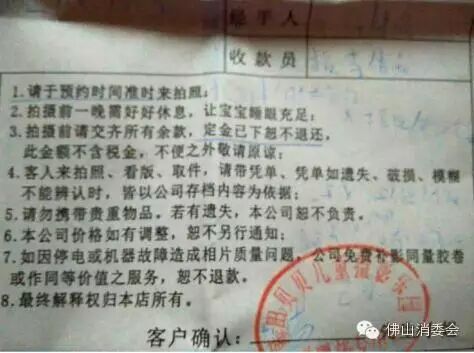 经手人
收款员
1.请于预约时间准时来拍照;
2.拍摄前一晚需好好休息,让宝宝睡眼充足;
3.拍摄前请交齐所有余款,定金已下恕不退还,
此金额不含税金,不便之外敬请原谅;
4.客人来拍照、看版、取件,请带凭单、凭单如遗失、破损、模糊
不能辨认时、皆以公司存档内容为依据;
5.请勿携带贵重物品。若有遗失,本公司恕不负责。
6.本公司价格如有调整,恕不另行通知;
7.如因停电或机器故障造成相片质量问题,公司免费补影同量胶卷
或作同等价值之服务,恕不退款。
8.最终解释权归本店所有。
贝贝儿童摄影乐园
客户确认:
佛山消委会